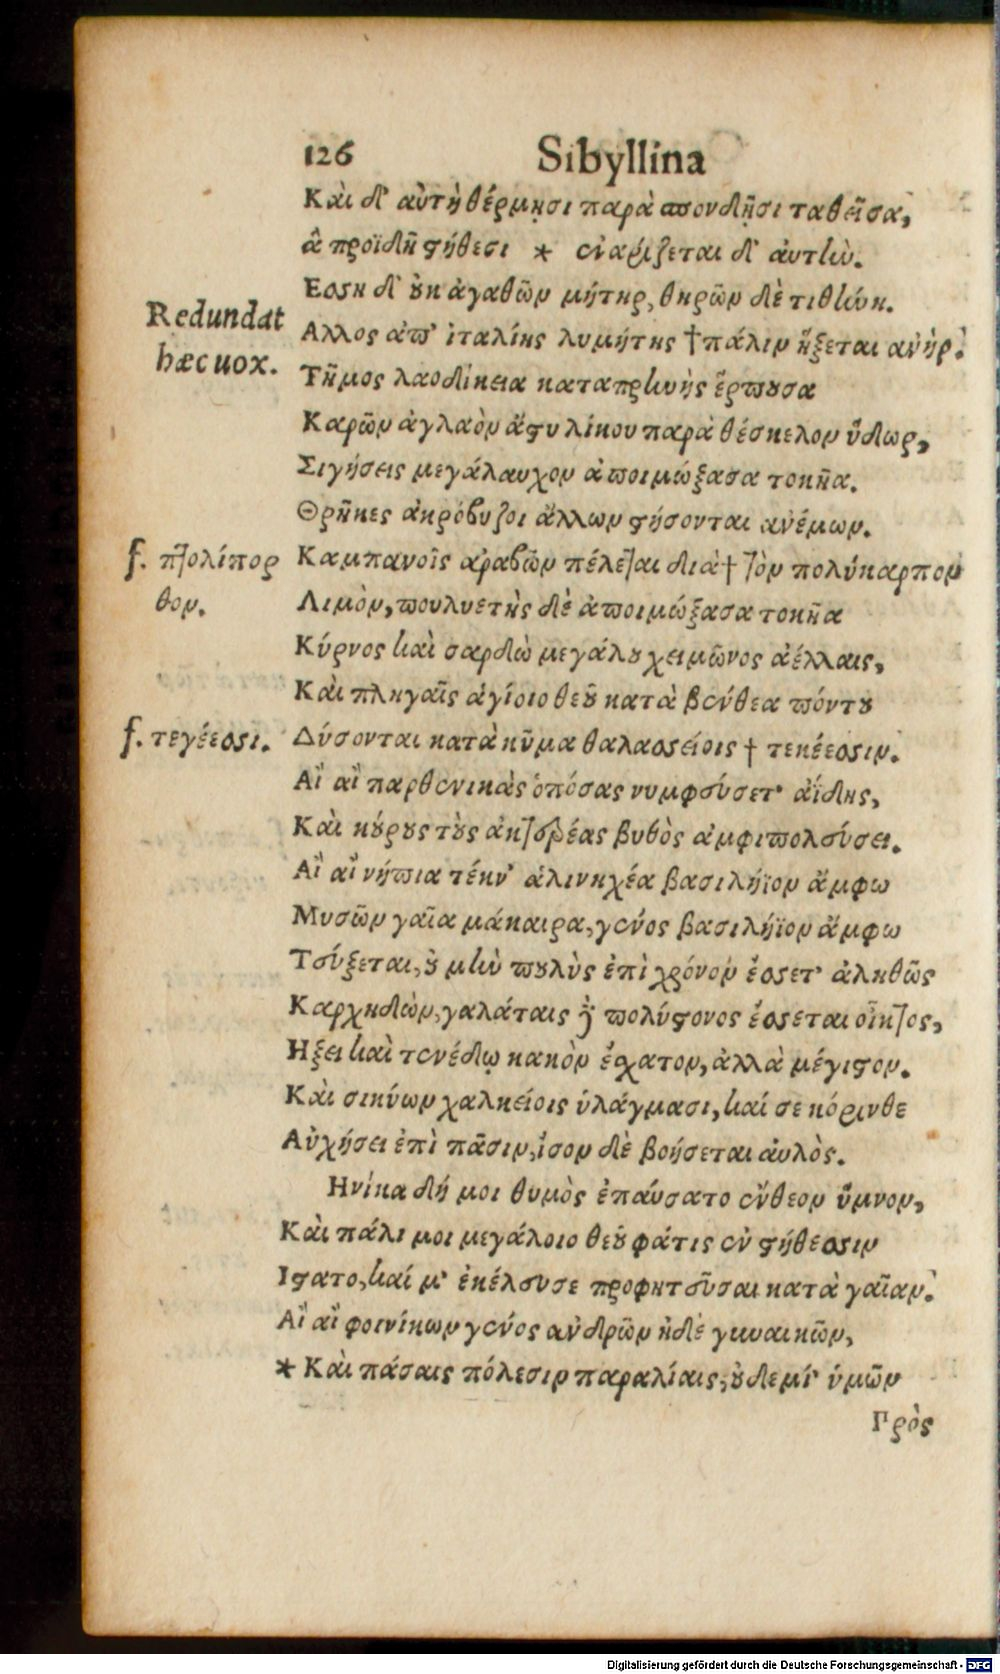 126 Sibyllina
Καὶ δ' αὐτὴ θέρμῃσι παρὰ σπονδῇσι ταθεῖσα,
ἃ προϊδῆ στήθεσι * ἐναρίζεται δ' ἀυτὴν.
Εσση δ' οὐκ ἀγαθῶν μήτηρ, θηρῶν δὲ τιθήνη.
Redundat hæc uox.
Αλλος ἀπ' ἰταλίης λυμήτης † πάλιν ἥξεται ανὴρ.
Τῆμος λαοδίκεια καταπρηνὴς ἔρπουσα
Καρῶν ἀγλαὸν ἄστυ λίκου παρὰ θέσκελον ὕδωρ,
Σιγήσεις μεγάλαυχον ἀποιμώξασα τοκῆα.
Θρῆκες ἀκρόβυζοι ἄλλων στήσονται ανέμων.
f. πτολίπορ
θον.
Καμπανοῖς αραβῶν πέλεται διὰ † τὸν πολύκαρπον
Λιμὸν, πουλυετὴς δὲ ἀποιμώξασα τοκῆα
Κύρνος καὶ σαρδὼ μεγάλου χειμῶνος ἀέλλαις,
Καὶ πληγαῖς ἁγίοιο θεοῦ κατὰ βένθεα πόντου
f. τεγέεσσι.
Δύσονται κατὰ κῦμα θαλασσείοις † τεκέεσσιν.
Αἲ αἲ παρθενικὰς ὁπόσας νυμφεύσετ' ἀΐδης,
Καὶ κούρους τοὺς ἀκτερέας βυθὸς ἀμφιπολεύσει.
Αἲ αἲ νήπια τέκν' ἁλινηχέα βασιλήϊον ἄμφω
Μυσῶν γαῖα μάκαιρα, γένος βασιλήϊον ἄμφω
Τεύξεται, οὐ μὴν πουλὺς ἐπὶ χρόνον ἔσσετ' ἀληθῶς
Καρχηδὼν, γαλάταις δὲ πολύστονος ἔσσεται οἶκτος,
Ηξει καὶ τενέδῳ κακὸν ἔσχατον, ἀλλὰ μέγιστον.
Καὶ σικύων χαλκείοις ὑλάγμασι, καί σε κόρινθε
Αὐχήσει ἐπὶ πᾶσιν, ἶσον δὲ βοήσεται ἀυλὸς.
Ηνίκα δή μοι θυμὸς ἐπαύσατο ἔνθεον ὕμνον,
Καὶ πάλι μοι μεγάλοιο θεοῦ φάτις ἐν στήθεσσιν
Ιστατο, καί μ' ἐκέλευσε προφητεῦσαι κατὰ γαῖαν.
Αἲ αἲ φοινίκων γένος ανδρῶν ἠδὲ γυναικῶν,
* Καὶ πάσαις πόλεσιν παραλίαις, οὐδεμί' ὑμῶν
Πρὸς
Digitalisierung gefördert durch die Deutsche Forschungsgemeinschaft - DFG